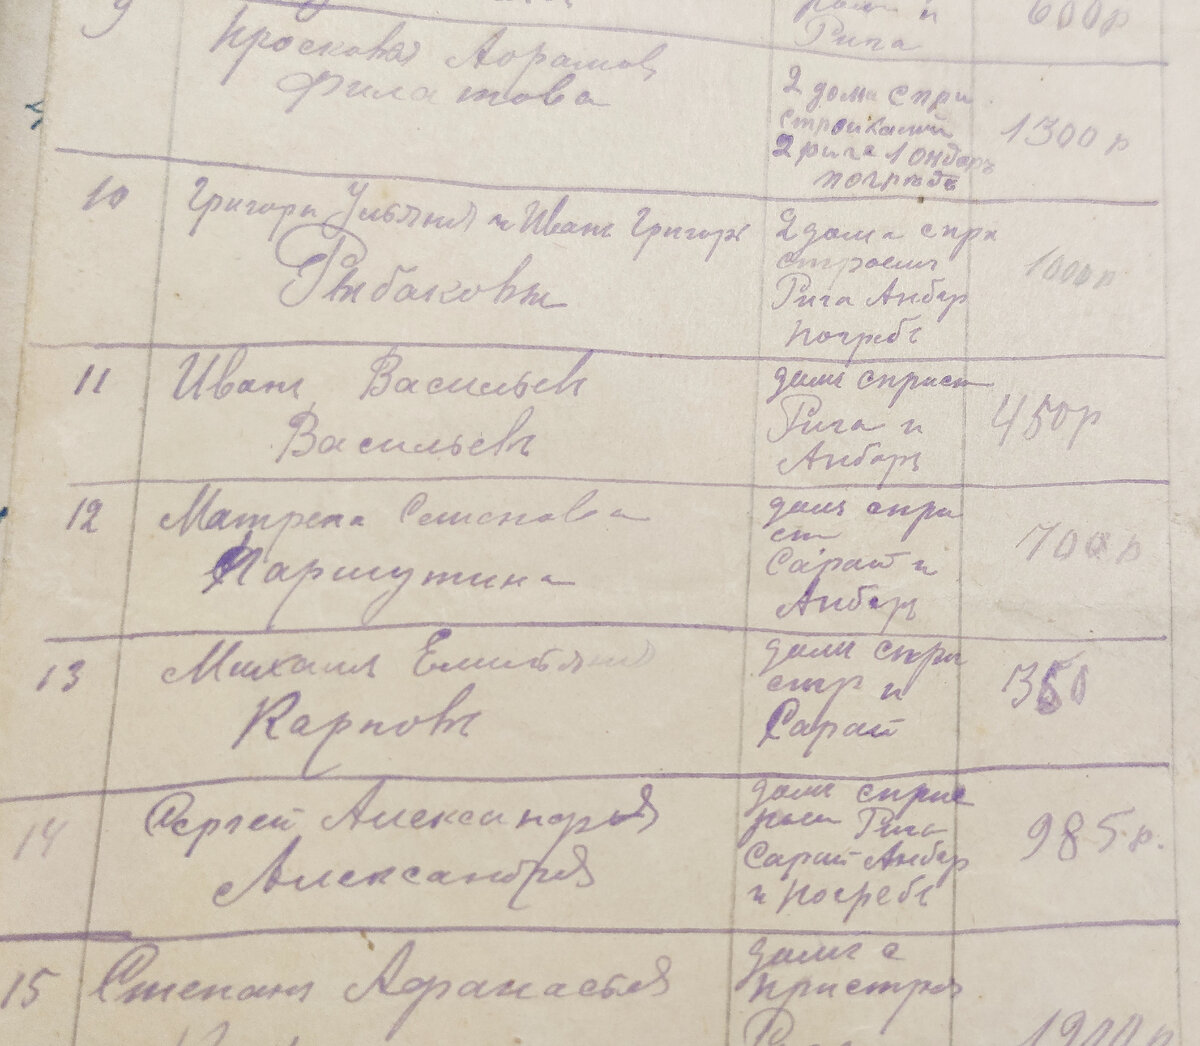 9
Просковья Абрамов
Филатова
Рига
600 р
2 дома с при
стройками
2 рига 1 онбаръ
погребъ
1300 р
10
Григори Ульяно и Иванъ Григорь
Рыбаковы
2 дома с при
строени
Рига Анбар
погребъ
1000 р
11
Иванъ Васильевъ
Васильевъ
домъ сприст
Рига и
Анбаръ
450 р
12
Матрена Семенова
Паршутина
домъ спри
ст
Сарай и
Анбаръ
700 р
13
Михаилъ Емельяно
Карповъ
домъ спри
стр и
Сарай
350
14
Сергей Александров
Александров
домъ сприс
Рига
Сарай Анбар
и погребъ
985 р.
15
Степанъ Афанасьев
домъ с
пристро
1900 р